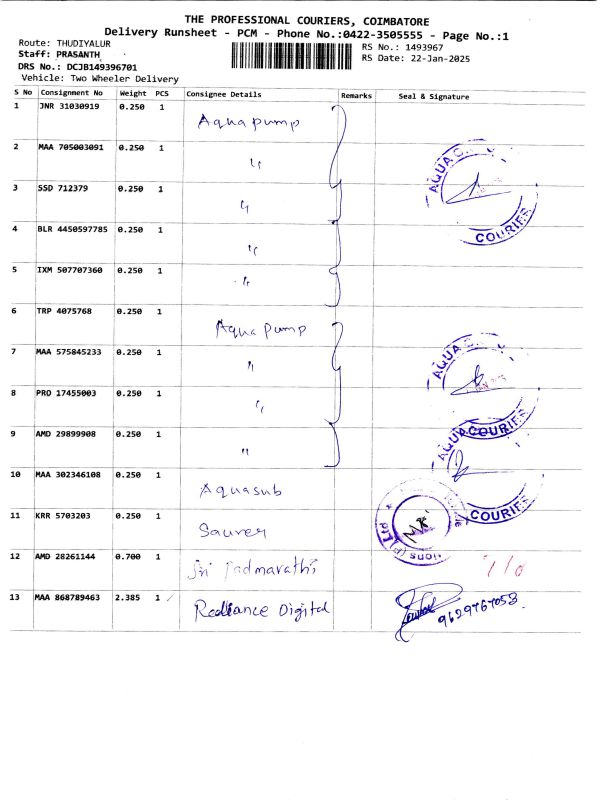 THE PROFESSIONAL COURIERS, COIMBATORE
Delivery Runsheet - PCM - Phone No.:0422-3505555 - Page No.:1
Route: THUDIYALUR
Staff: PRASANTH
DRS No.: DCJB149396701
Vehicle: Two Wheeler Delivery
RS No.: 1493967
RS Date: 22-Jan-2025
S No Consignment No Weight PCS Consignee Details Remarks Seal & Signature
1 JNR 31030919 0.250 1 Aquapump
2 MAA 705003091 0.250 1 "
3 SSD 712379 0.250 1 "
4 BLR 4450597785 0.250 1 "
5 IXM 507707360 0.250 1 "
6 TRP 4075768 0.250 1 Aqua Pump
7 MAA 575845233 0.250 1 "
8 PRO 17455003 0.250 1 "
9 AMD 29899908 0.250 1 "
10 MAA 302346108 0.250 1 Aquasub
11 KRR 5703203 0.250 1
12 AMD 28261144 0.700 1 Sri
13 MAA 868789463 2.385 1 Redliance Digital
AQUA
COURIER
AQUA
COURIER
AQUA
COURIER
9629767053